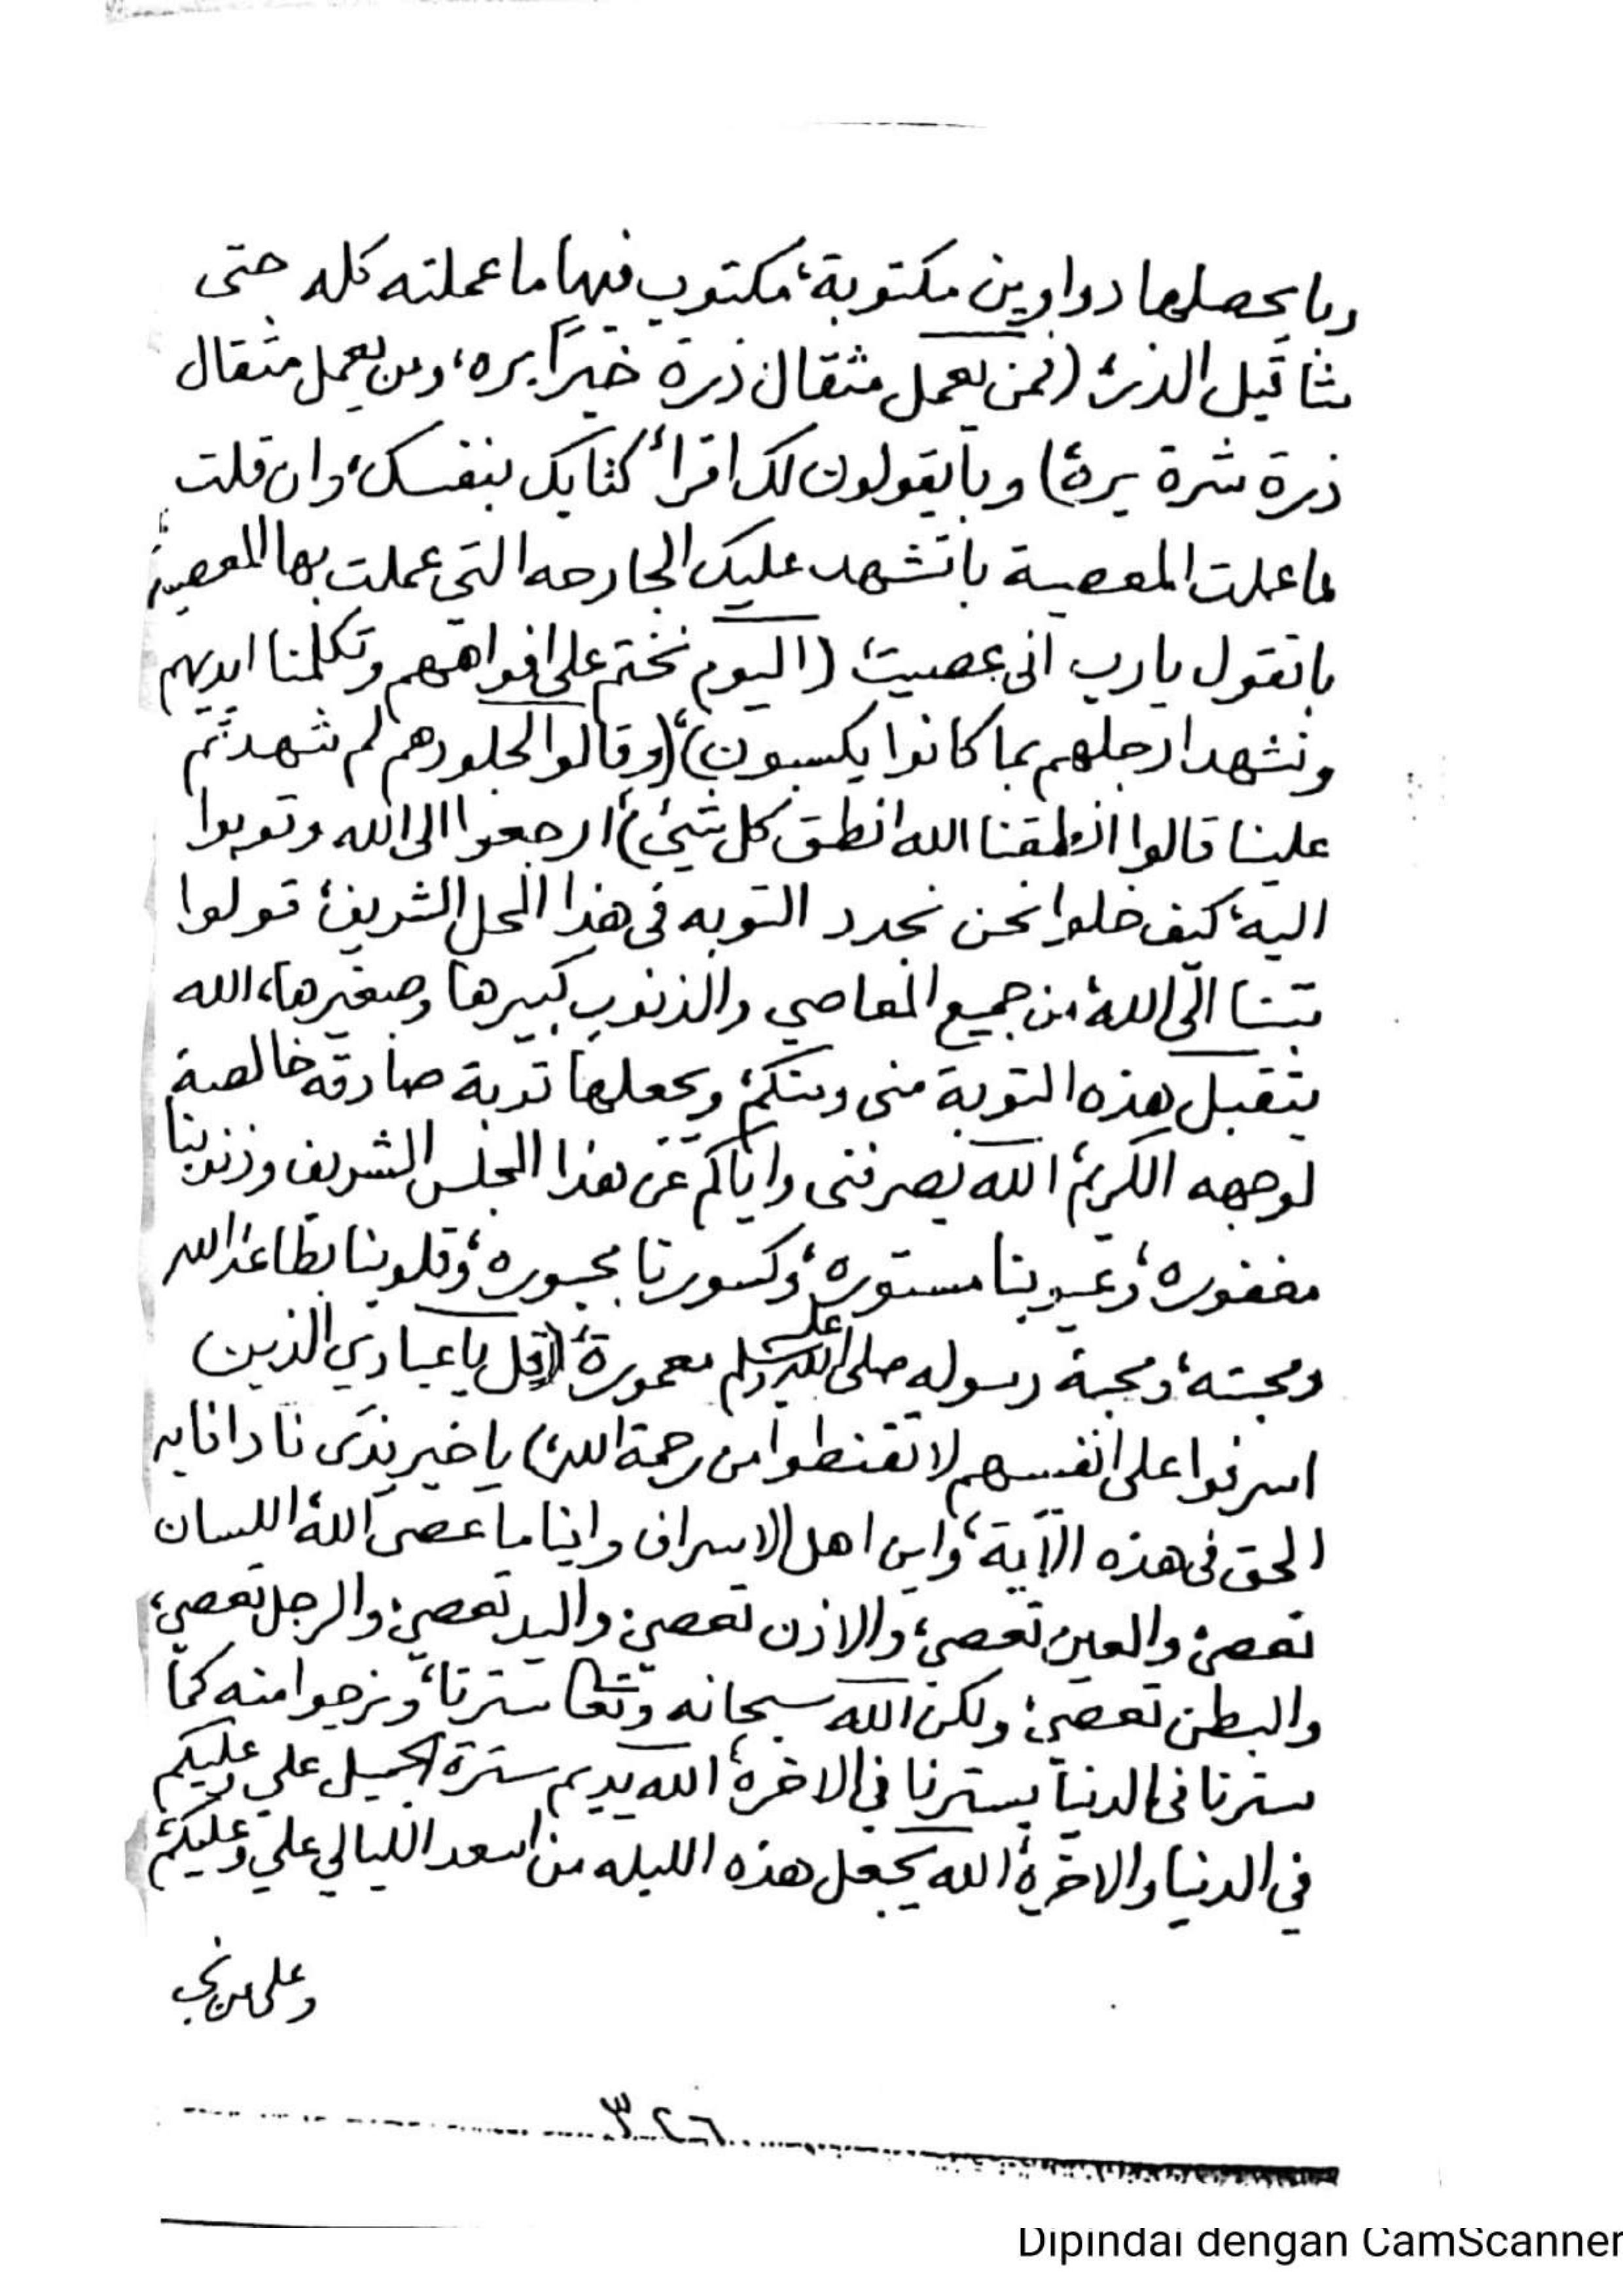 وبا يحصلها دواوين مكتوبة، مكتوب فيها ما عملته كله حتى
مثاقيل الذر، (فمن يعمل مثقال ذرة خيرًا يره، ومن يعمل مثقال
ذرة شرة يره) وبايقولون لك اقرأ كتابك بنفسك، وان قلت
ما عملت المعصية باتشهد عليك الجارحه التي عملت بها المعصية،
باتقول يارب اني عصيت، (اليوم نختم على افواههم وتكلمنا ايديهم
وتشهد ارجلهم بما كانوا يكسبون)، (وقالوا لجلودهم لم شهدتم
علينا قالوا انطقنا الله انطق كل شيء)، ارجعوا الى الله وتوبوا
اليه، كيف خلوا نحن نجدد التوبه في هذا المحل الشريف، قولوا
تبنا الى الله من جميع المعاصي والذنوب كبيرها وصغيرها، الله
يتقبل هذه التوبة مني ومنكم، ويجعلها توبة صادقه خالصة
لوجهه الكريم، الله يصرفني واياكم عن هذا المجلس الشريف وذنوبنا
مغفوره، وعيوبنا مستوره، وكسورنا مجبوره، وقلوبنا بطاعة الله
ومحبته، ومحبة رسوله صلى الله عليه وسلم معمورة، (قل يا عبادي الذين
اسرفوا على انفسهم لا تقنطوا من رحمة الله) يا خير ندى نادانا به
الحق في هذه الآية، واين اهل الاسراف واينا ما عصى الله، اللسان
تعصي، والعين تعصي، والاذن تعصي، واليد تعصي، والرجل تعصي،
والبطن تعصي، ولكن الله سبحانه وتعا سترنا، ونرجوا منه كما
سترنا في الدنيا يسترنا في الاخرة، الله يديم سترة الجميل علي وعليكم
في الدنيا والاخرة، الله يجعل هذه الليله من اسعد الليالي علي وعليكم
وعلى من نحب
٣٢٦
Dipindai dengan CamScanner